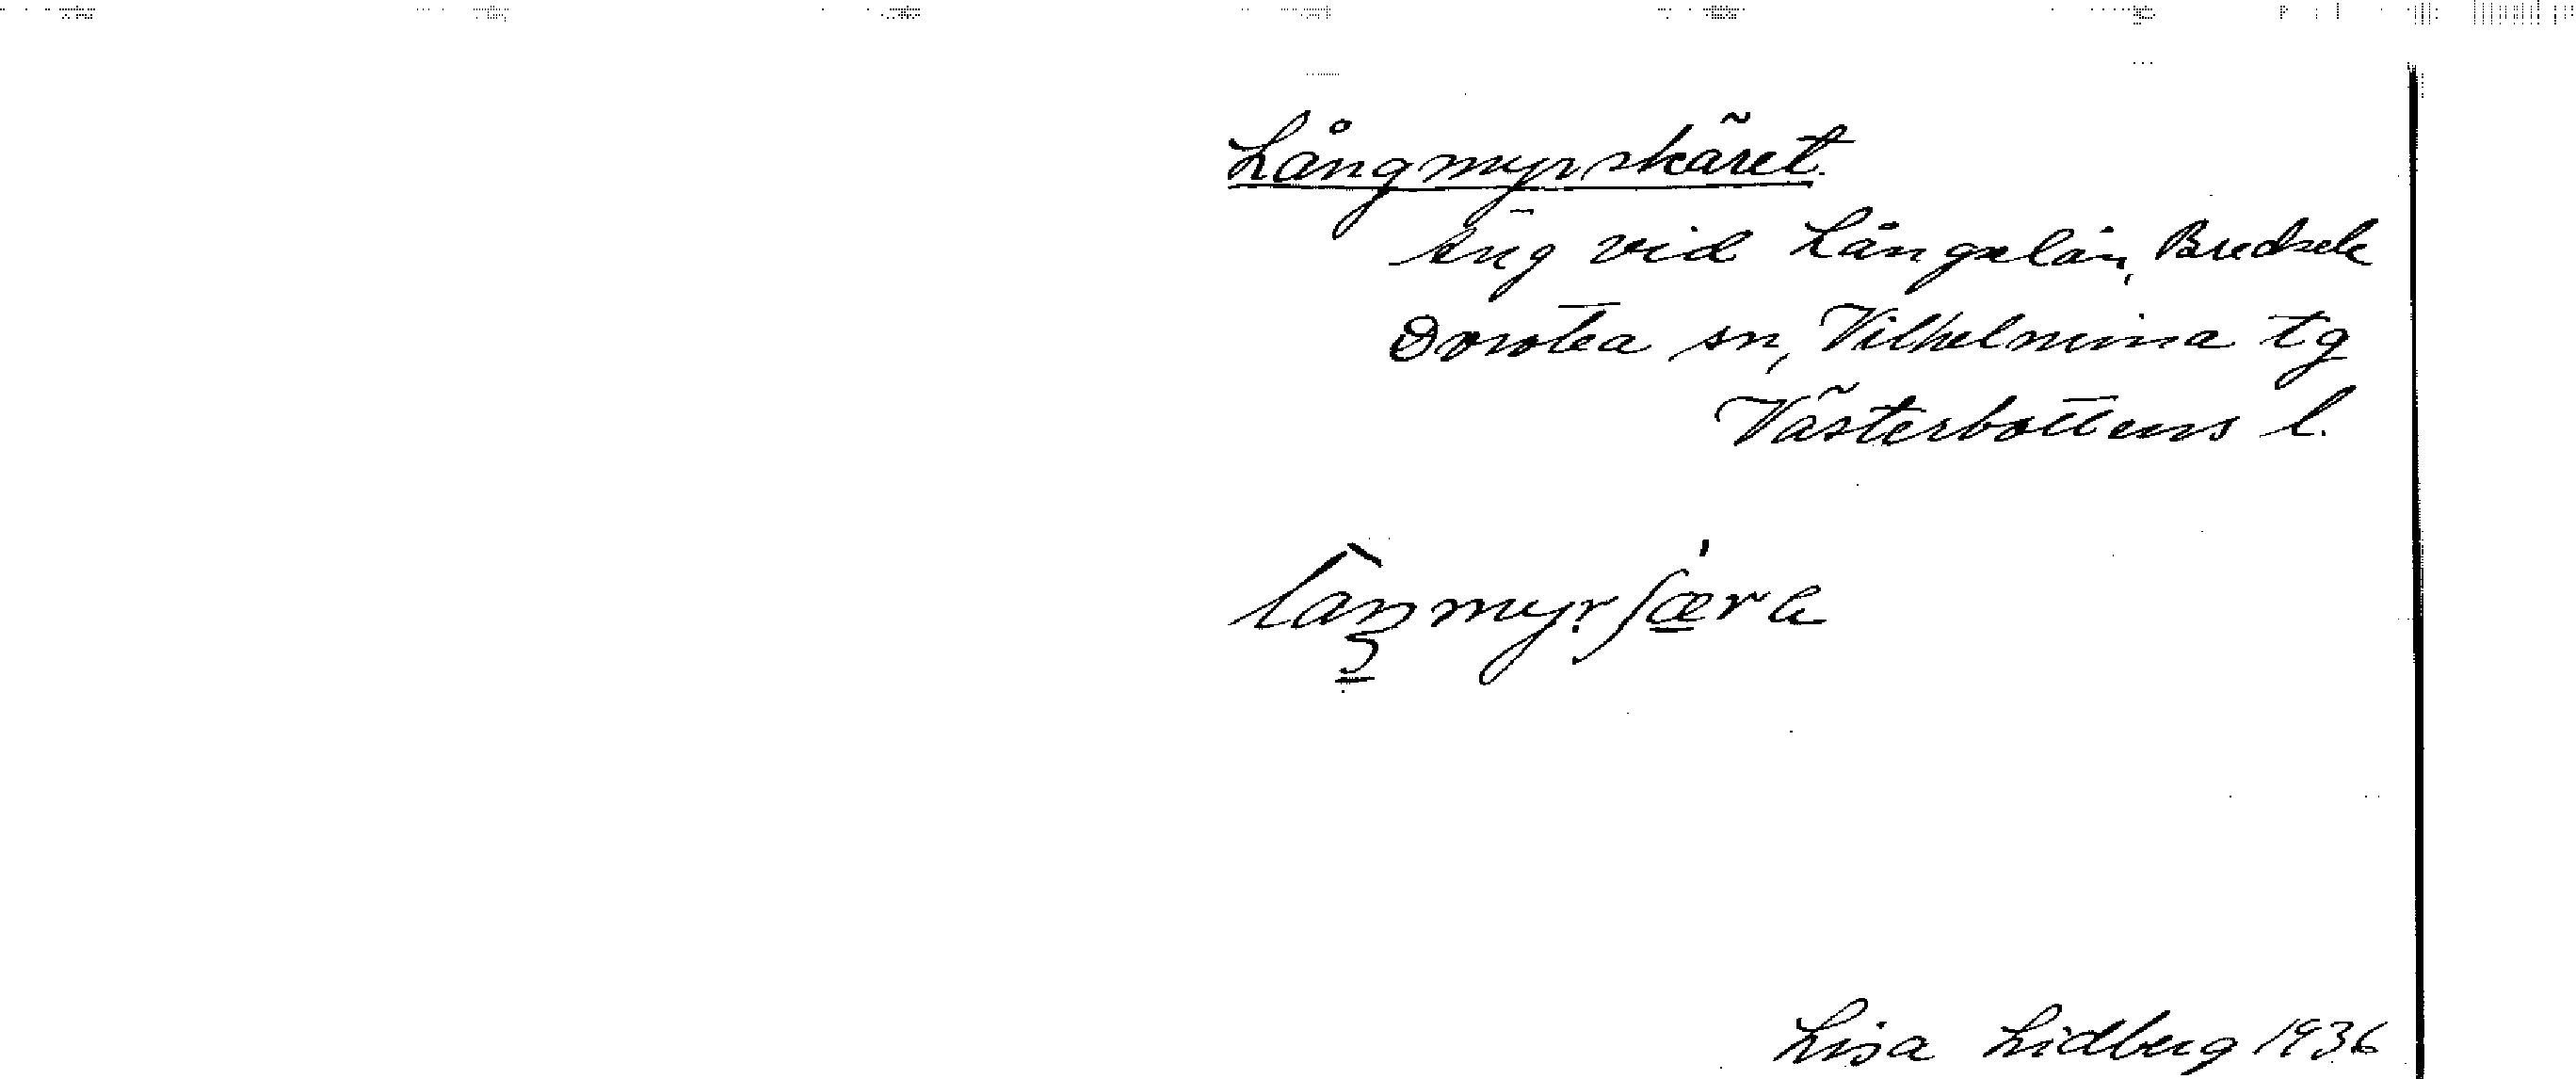 Långmyrskäret.
Äng vid Långselån, Bredsele
Dorotea sn, Vilhelmina tg
Västerbottens l.
Lisa Lidberg 1936